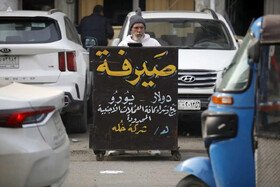 صيرفة
دولار يورو
بيع وشراء كافة العملات الأجنبية
الموجودة
شركة خله